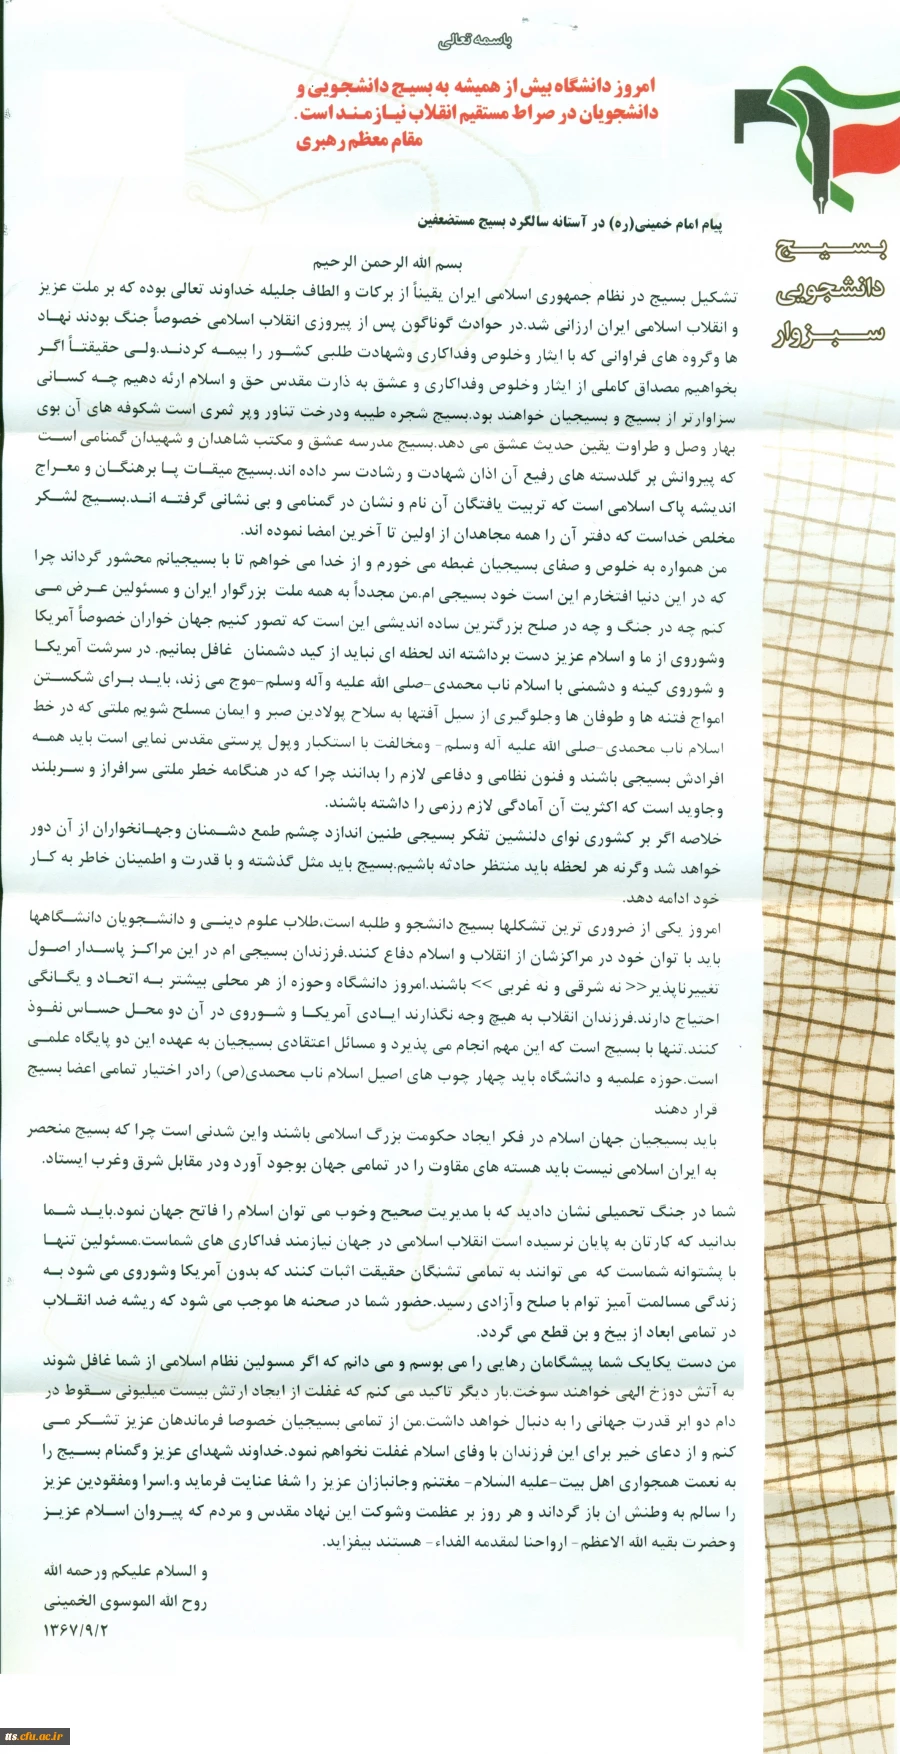 باسمه تعالی
امروز دانشگاه بیش از همیشه به بسیج دانشجویی و
دانشجویان در صراط مستقیم انقلاب نیازمند است.
مقام معظم رهبری
بسیج
دانشجویی
سبزوار
پیام امام خمینی(ره) در آستانه سالگرد بسیج مستضعفین
بسم الله الرحمن الرحیم
تشکیل بسیج در نظام جمهوری اسلامی ایران یقیناً از برکات و الطاف جلیله خداوند تعالی بوده که بر ملت عزیز
و انقلاب اسلامی ایران ارزانی شد.در حوادث گوناگون پس از پیروزی انقلاب اسلامی خصوصاً جنگ بودند نهاد
ها وگروه های فراوانی که با ایثار وخلوص وفداکاری وشهادت طلبی کشور را بیمه کردند.ولی حقیقتاً اگر
بخواهیم مصداق کاملی از ایثار وخلوص وفداکاری و عشق به ذارت مقدس حق و اسلام ارئه دهیم چه کسانی
سزاوارتر از بسیج و بسیجیان خواهند بود.بسیج شجره طیبه ودرخت تناور وپر ثمری است شکوفه های آن بوی
بهار وصل و طراوت یقین حدیث عشق می دهد.بسیج مدرسه عشق و مکتب شاهدان و شهیدان گمنامی است
که پیروانش بر گلدسته های رفیع آن اذان شهادت و رشادت سر داده اند.بسیج میقات پا برهنگان و معراج
اندیشه پاک اسلامی است که تربیت یافتگان آن نام و نشان در گمنامی و بی نشانی گرفته اند.بسیج لشکر
مخلص خداست که دفتر آن را همه مجاهدان از اولین تا آخرین امضا نموده اند.
من همواره به خلوص و صفای بسیجیان غبطه می خورم و از خدا می خواهم تا با بسیجیانم محشور گرداند چرا
که در این دنیا افتخارم این است خود بسیجی ام.من مجدداً به همه ملت بزرگوار ایران و مسئولین عرض می
کنم چه در جنگ و چه در صلح بزرگترین ساده اندیشی این است که تصور کنیم جهان خواران خصوصاً آمریکا
وشوروی از ما و اسلام عزیز دست برداشته اند لحظه ای نباید از کید دشمنان غافل بمانیم. در سرشت آمریکا
و شوروی کینه و دشمنی با اسلام ناب محمدی-صلی الله علیه وآله وسلم-موج می زند، باید برای شکستن
امواج فتنه ها و طوفان ها وجلوگیری از سیل آفتها به سلاح پولادین صبر و ایمان مسلح شویم ملتی که در خط
اسلام ناب محمدی-صلی الله علیه آله وسلم- ومخالفت با استکبار وپول پرستی مقدس نمایی است باید همه
افرادش بسیجی باشند و فنون نظامی و دفاعی لازم را بدانند چرا که در هنگامه خطر ملتی سرافراز و سربلند
وجاوید است که اکثریت آن آمادگی لازم رزمی را داشته باشند.
خلاصه اگر بر کشوری نوای دلنشین تفکر بسیجی طنین اندازد چشم طمع دشمنان وجهانخواران از آن دور
خواهد شد وگرنه هر لحظه باید منتظر حادثه باشیم.بسیج باید مثل گذشته و با قدرت و اطمینان خاطر به کار
خود ادامه دهد.
امروز یکی از ضروری ترین تشکلها بسیج دانشجو و طلبه است،طلاب علوم دینی و دانشجویان دانشگاهها
باید با توان خود در مراکزشان از انقلاب و اسلام دفاع کنند.فرزندان بسیجی ام در این مراکز پاسدار اصول
تغییرناپذیر<< نه شرقی و نه غربی >> باشند.امروز دانشگاه وحوزه از هر محلی بیشتر به اتحاد و یگانگی
احتیاج دارند.فرزندان انقلاب به هیچ وجه نگذارند ایادی آمریکا و شوروی در آن دو محل حساس نفوذ
کنند.تنها با بسیج است که این مهم انجام می پذیرد و مسائل اعتقادی بسیجیان به عهده این دو پایگاه علمی
است.حوزه علمیه و دانشگاه باید چهار چوب های اصیل اسلام ناب محمدی(ص) رادر اختیار تمامی اعضا بسیج
قرار دهند
باید بسیجیان جهان اسلام در فکر ایجاد حکومت بزرگ اسلامی باشند واین شدنی است چرا که بسیج منحصر
به ایران اسلامی نیست باید هسته های مقاوت را در تمامی جهان بوجود آورد ودر مقابل شرق وغرب ایستاد.
شما در جنگ تحمیلی نشان دادید که با مدیریت صحیح وخوب می توان اسلام را فاتح جهان نمود.باید شما
بدانید که کارتان به پایان نرسیده است انقلاب اسلامی در جهان نیازمند فداکاری های شماست.مسئولین تنها
با پشتوانه شماست که می توانند به تمامی تشنگان حقیقت اثبات کنند که بدون آمریکا وشوروی می شود به
زندگی مسالمت آمیز توام با صلح وآزادی رسید.حضور شما در صحنه ها موجب می شود که ریشه ضد انقلاب
در تمامی ابعاد از بیخ و بن قطع می گردد.
من دست یکایک شما پیشگامان رهایی را می بوسم و می دانم که اگر مسولین نظام اسلامی از شما غافل شوند
به آتش دوزخ الهی خواهند سوخت.بار دیگر تاکید می کنم که غفلت از ایجاد ارتش بیست میلیونی سقوط در
دام دو ابر قدرت جهانی را به دنبال خواهد داشت.من از تمامی بسیجیان خصوصا فرماندهان عزیز تشکر می
کنم و از دعای خیر برای این فرزندان با وفای اسلام غفلت نخواهم نمود.خداوند شهدای عزیز وگمنام بسیج را
به نعمت همجواری اهل بیت-علیه السلام- مغتنم وجانبازان عزیز را شفا عنایت فرماید و.اسرا ومفقودین عزیز
را سالم به وطنش ان باز گرداند و هر روز بر عظمت وشوکت این نهاد مقدس و مردم که پیروان اسلام عزیز
وحضرت بقیه الله الاعظم- ارواحنا لمقدمه الفداء- هستند بیفزاید.
و السلام علیکم ورحمه الله
روح الله الموسوی الخمینی
۱۳۶۷/۹/۲
tts.cfu.ac.ir